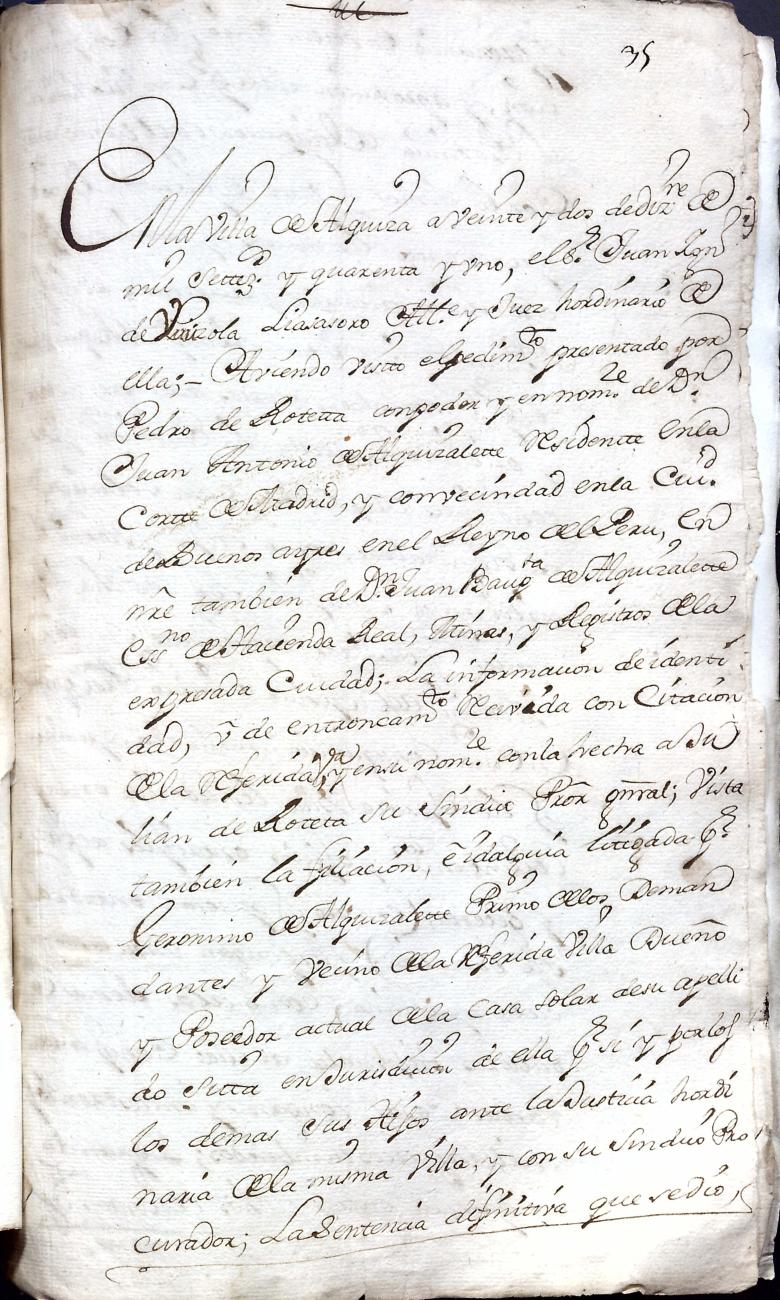 35
En la Villa de Alquiza a Veinte y dos de Diz.re de
mil Settez.s y quarenta y uno, el S.r Juan Ign.o
de Liasasoro Alt.e y Juez hordinario de
ella;– Aviendo visto el pedim.to presentado por
Pedro de Rotetta con poder y en nom.e de D.n
Juan Antonio de Alquizalette residentte en la
Cortte de Madrid, y con vecindad en la Ciu.d
de Buenos ayres en el Reyno del Peru, en
nre tambien de D.n Juan Baup.ta de Alquizalette
Ess.no de Hacienda Real, Minas, y Registros de la
expresada Ciudad; La informacion de identi
dad, y de entroncam.to recivida con Citacion
de la referida V.a, y en su nom.e con la hecha a Ju
lian de Roteta su Sindico Pror gnral; Vista
tambien la filiacion, e idalguia litigada p.r
Geronimo de Alquizalette Primo de los Deman
dantes y Vecino de la referida Villa Dueño
y Poseedor actual de la Casa solar de su apelli
do sitta en Jurisdicion de ella p.r si y por los
los demas sus Hijos ante la Justicia hordi
naria de la misma Villa, y con su Sindico Pro
curador; La Sentencia difinitiva que se dió,